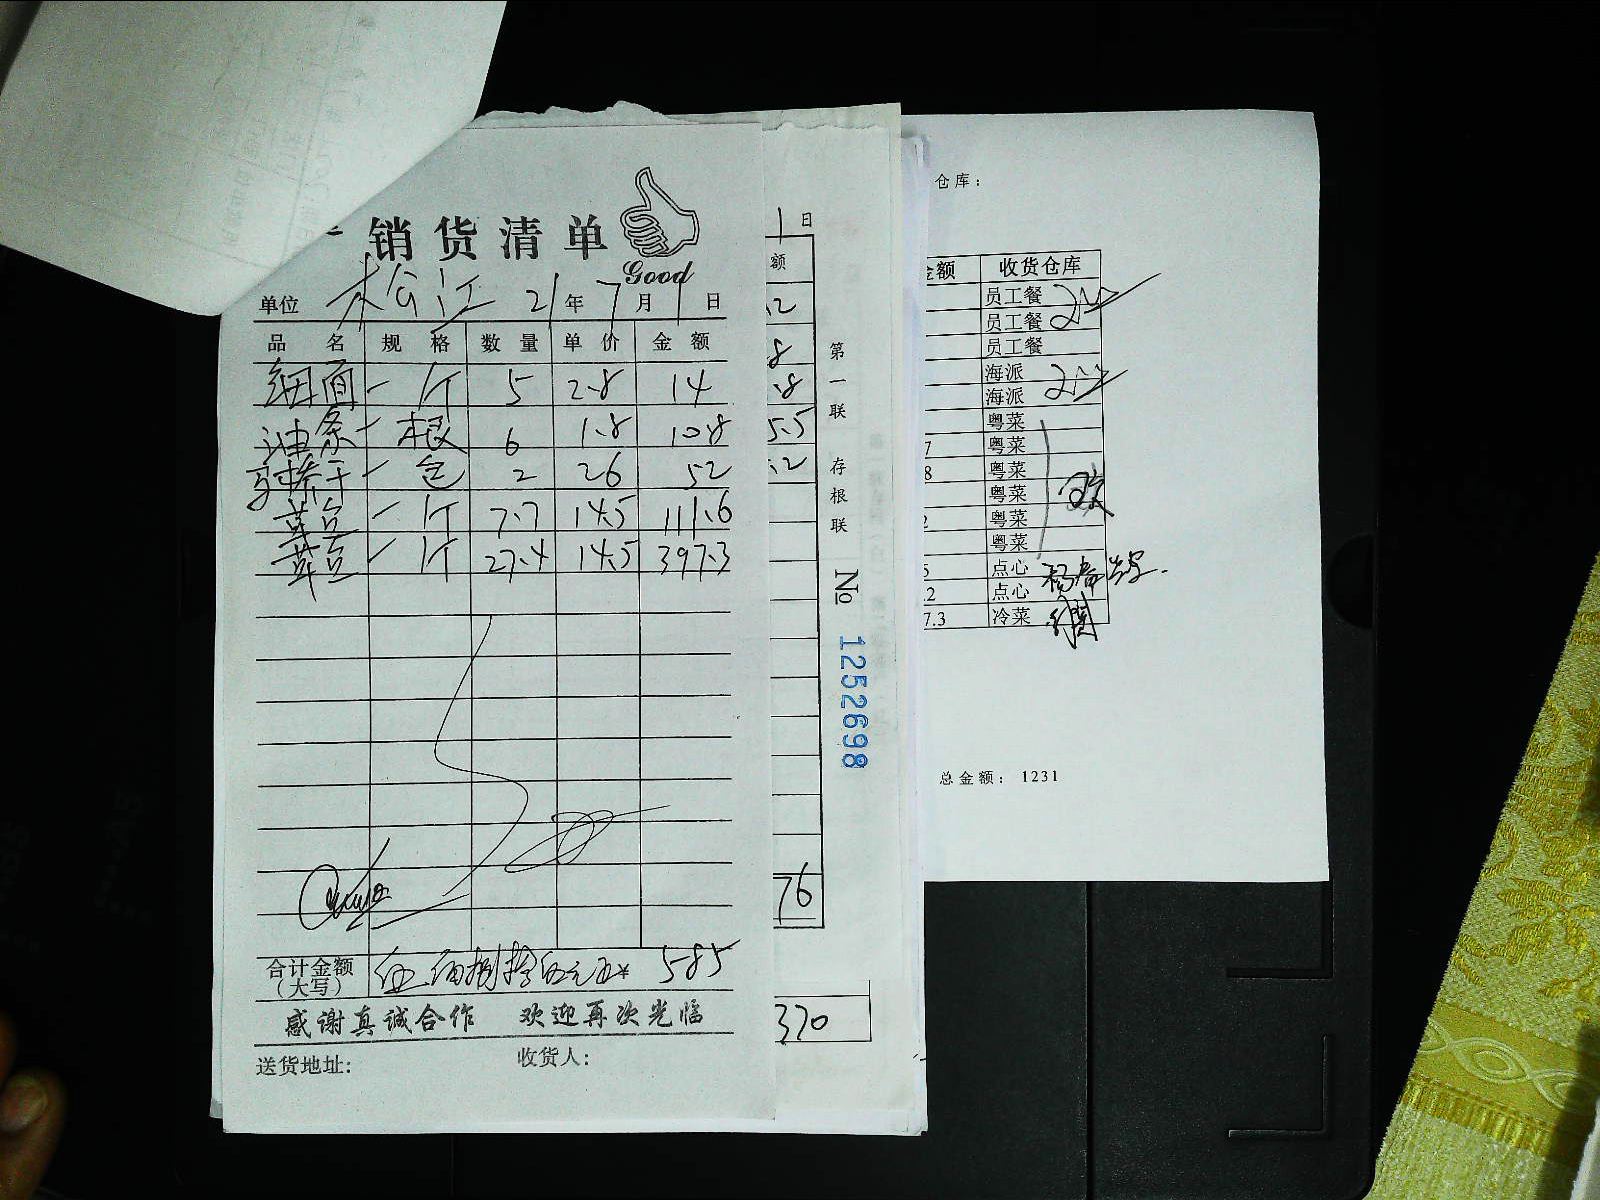 销货清单
Good
单位 松江 21年7月1日
品名 规格 数量 单价 金额
细面 一 个 5 2.8 14
油条 一 根 6 1.8 10.8
一 包 2 26 52
一 个 7.7 14.5 111.6
一 个 27.4 14.5 397.3
合计金额(大写) 伍佰捌拾伍元 ¥ 585
感谢真诚合作 欢迎再次光临
送货地址: 收货人:
1日
额
.2
8
.8
5.5
.2
76
370
第一联 存根联
№ 1252698
仓库:
金额 收货仓库
员工餐
员工餐
员工餐
海派
海派
粤菜
7 粤菜
8 粤菜
粤菜
2 粤菜
粤菜
5 点心
.2 点心
7.3 冷菜
总金额: 1231